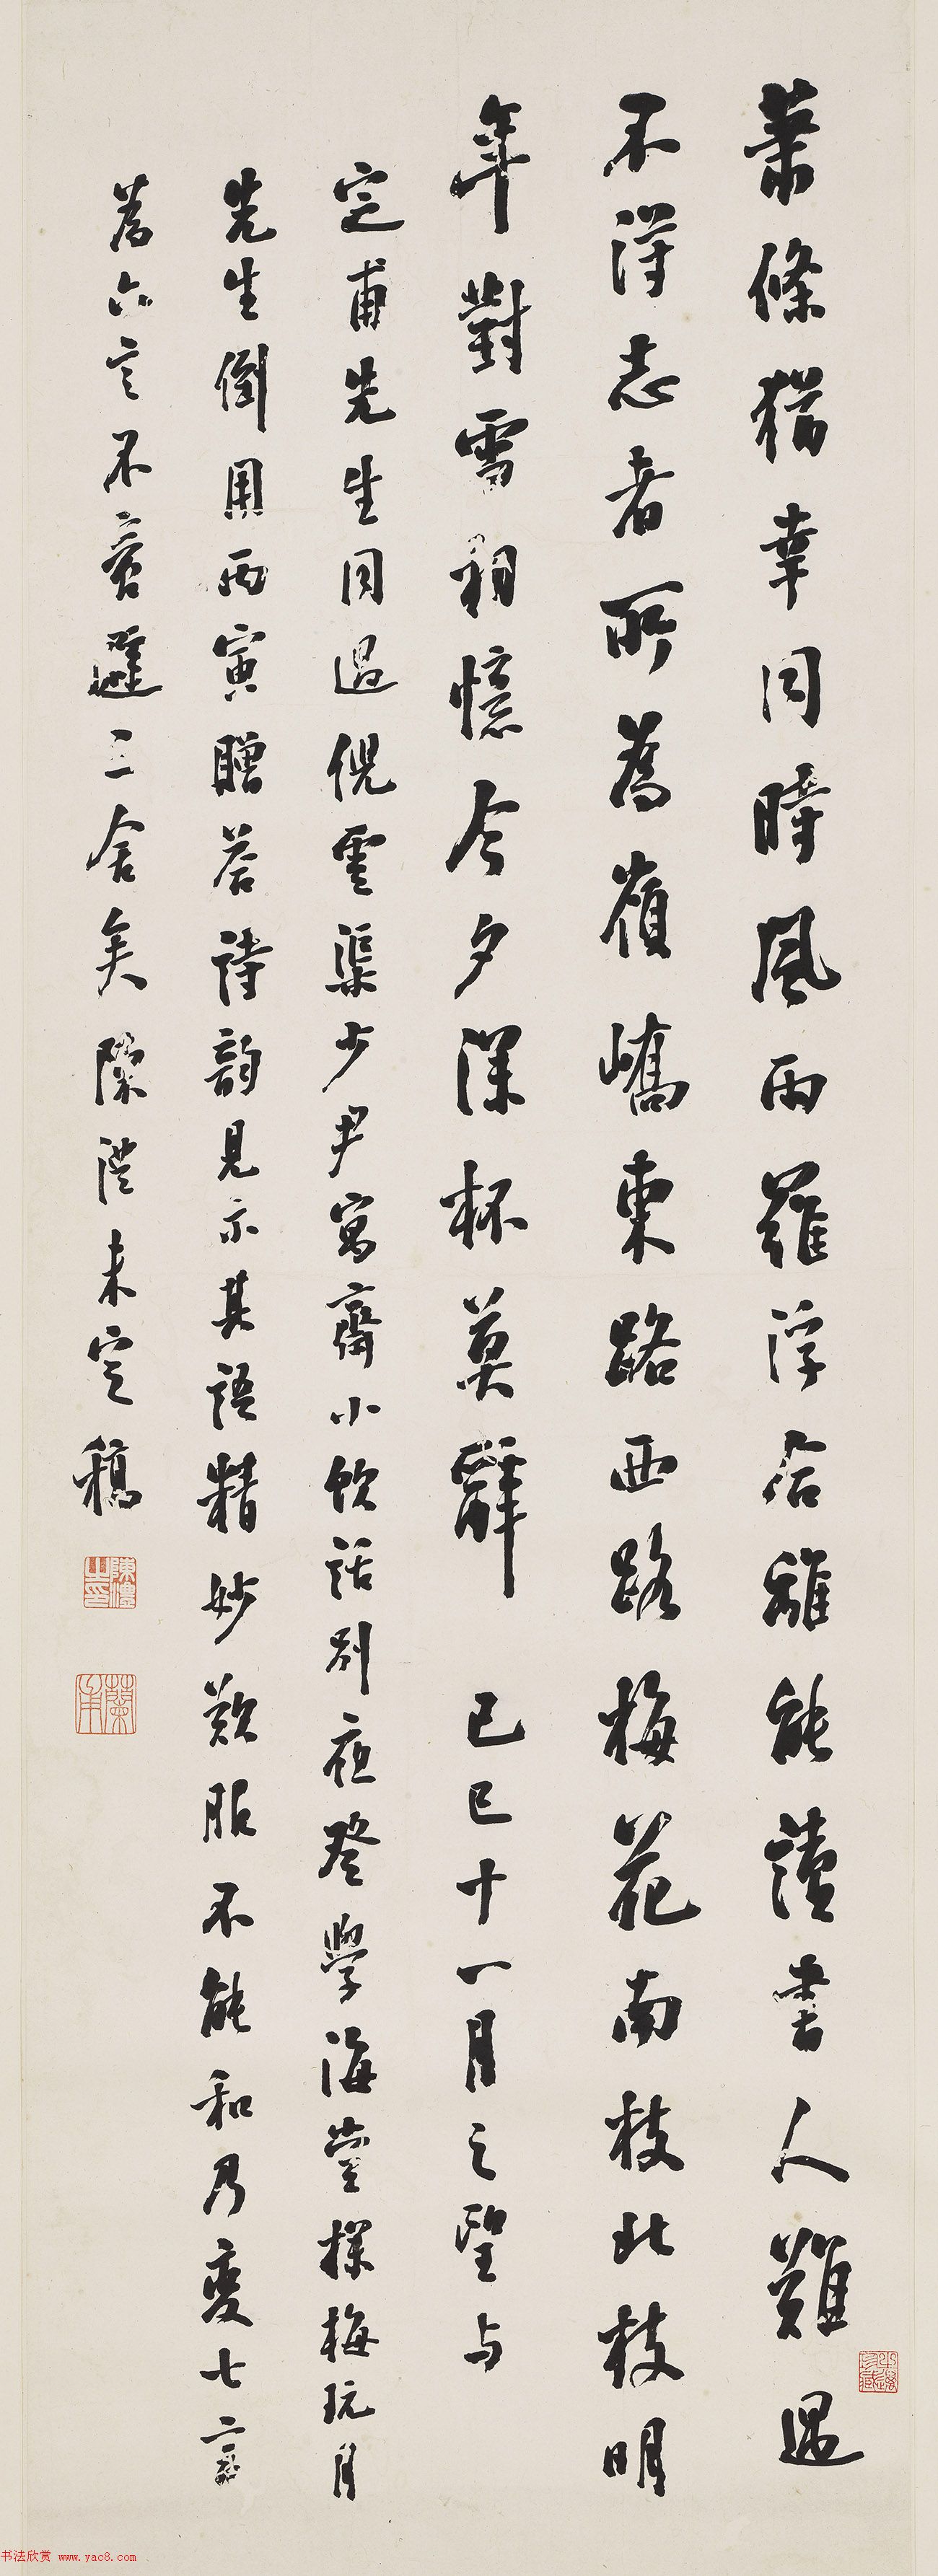 蕭條猶幸同時風雨羅浮合離能讀書人難遇
不得志者所為嶺嶠東路西路梅花南枝北枝明
年對雪相憶今夕深杯莫辭 己巳十一月之望與
定甫先生同過倪雲渠少尹寓齋小飲話別夜登學海堂探梅玩月
先生倒用丙寅贈答詩韻見示其語精妙歎服不能和乃變七言
為六言不啻避三舍矣陳澧未定稿
陳澧之印
蘭甫
书法欣赏 www.yac8.com